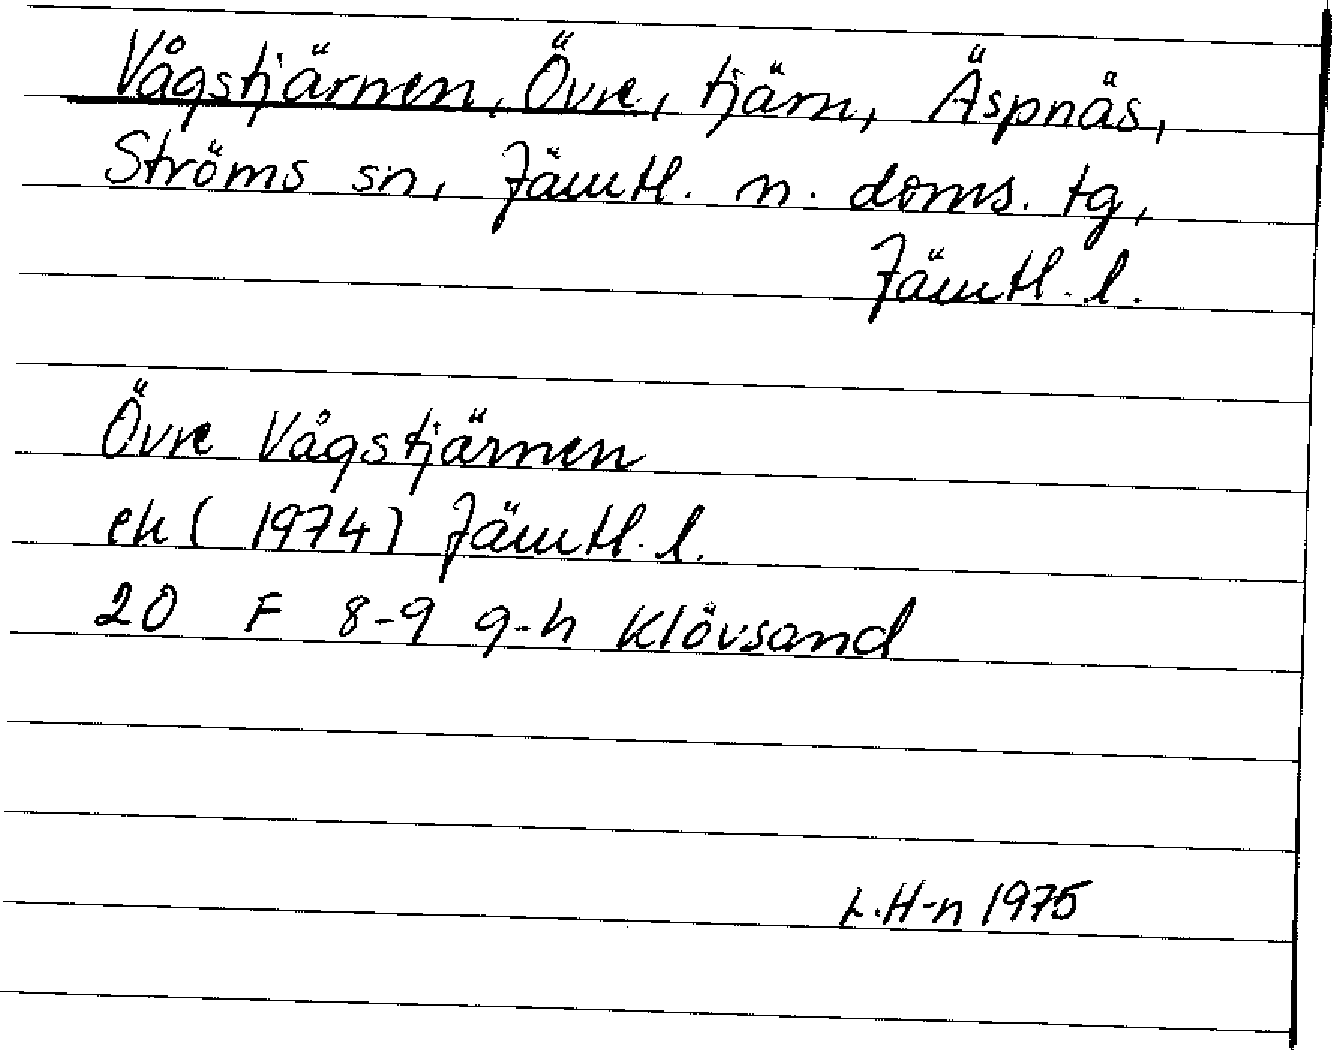 Vågstjärnen, Övre, tjärn, Äspnäs,
Ströms sn, Jämtl. n. doms. tg,
Jämtl. l.
Övre Vågstjärnen
ek (1974) Jämtl. l.
20 F 8-9 g-h Klövsand
L.H-n 1975